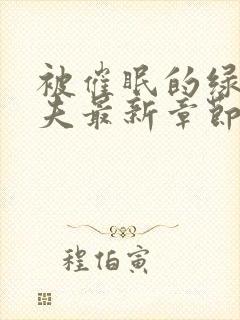 被催眠的绿
夫最新章节
程伯寅